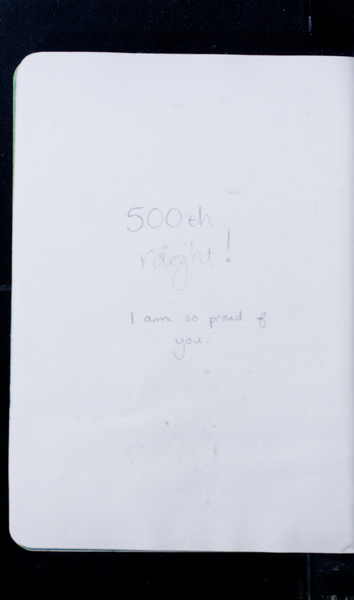 500th
night!
I am so proud of
you.